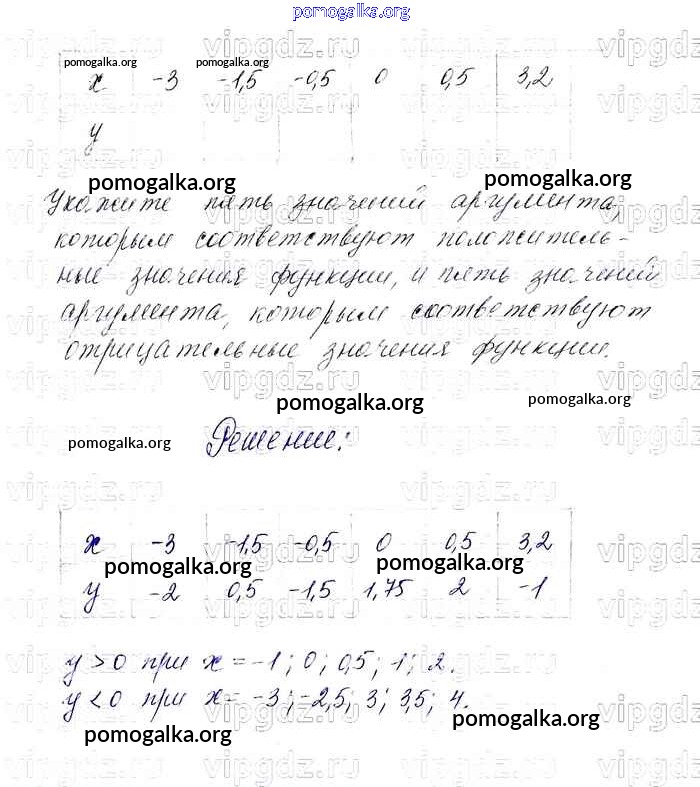 pomogalka.org
vipgdz.ru vipgdz.ru vipgdz.ru vipgdz.ru
pomogalka.org pomogalka.org
x -3 -1,5 -0,5 0 0,5 3,2
y
pomogalka.org pomogalka.org
Укажите пять значений аргумента,
которым соответствуют положитель-
ные значения функции, и пять значений
аргумента, которым соответствуют
отрицательные значения функции.
pomogalka.org pomogalka.org
pomogalka.org Решение:
x -3 -1,5 -0,5 0 0,5 3,2
pomogalka.org pomogalka.org
y -2 0,5 -1,5 1,75 2 -1
y > 0 при x = -1; 0; 0,5; 1; 2.
y < 0 при x = -3; -2,5; 3; 3,5; 4.
pomogalka.org pomogalka.org